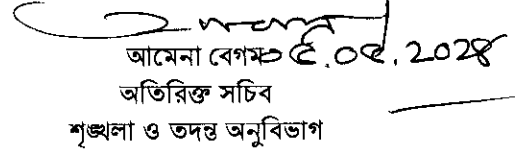 আমেনা বেগম ০৫.০৫.২০২৪
অতিরিক্ত সচিব
শৃঙ্খলা ও তদন্ত অনুবিভাগ